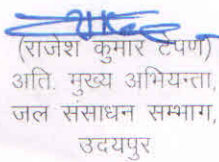 (राजेश कुमार टेपण)
अति. मुख्य अभियन्ता,
जल संसाधन सम्भाग,
उदयपुर